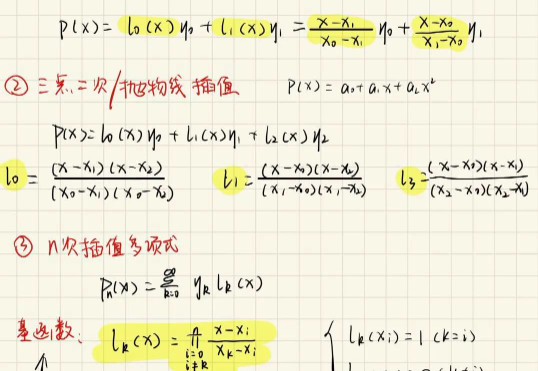 P(x) = l₀(x) y₀ + l₁(x) y₁ = \frac{x-x₁}{x₀-x₁} y₀ + \frac{x-x₀}{x₁-x₀} y₁
② 三点二次/抛物线插值 P(x) = a₀+a₁x+a₂x²
P(x) = l₀(x) y₀ + l₁(x) y₁ + l₂(x) y₂
l₀ = \frac{(x-x₁)(x-x₂)}{(x₀-x₁)(x₀-x₂)} l₁ = \frac{(x-x₀)(x-x₂)}{(x₁-x₀)(x₁-x₂)} l₃ = \frac{(x-x₀)(x-x₁)}{(x₂-x₀)(x₂-x₁)}
③ n次插值多项式
Pₙ(x) = \sum_{k=0}^{∞} yₖ lₖ(x)
基函数: lₖ(x) = \prod_{i=0, i≠k}^{n} \frac{x-xᵢ}{xₖ-xᵢ} { lₖ(xᵢ) = 1 (k=i)